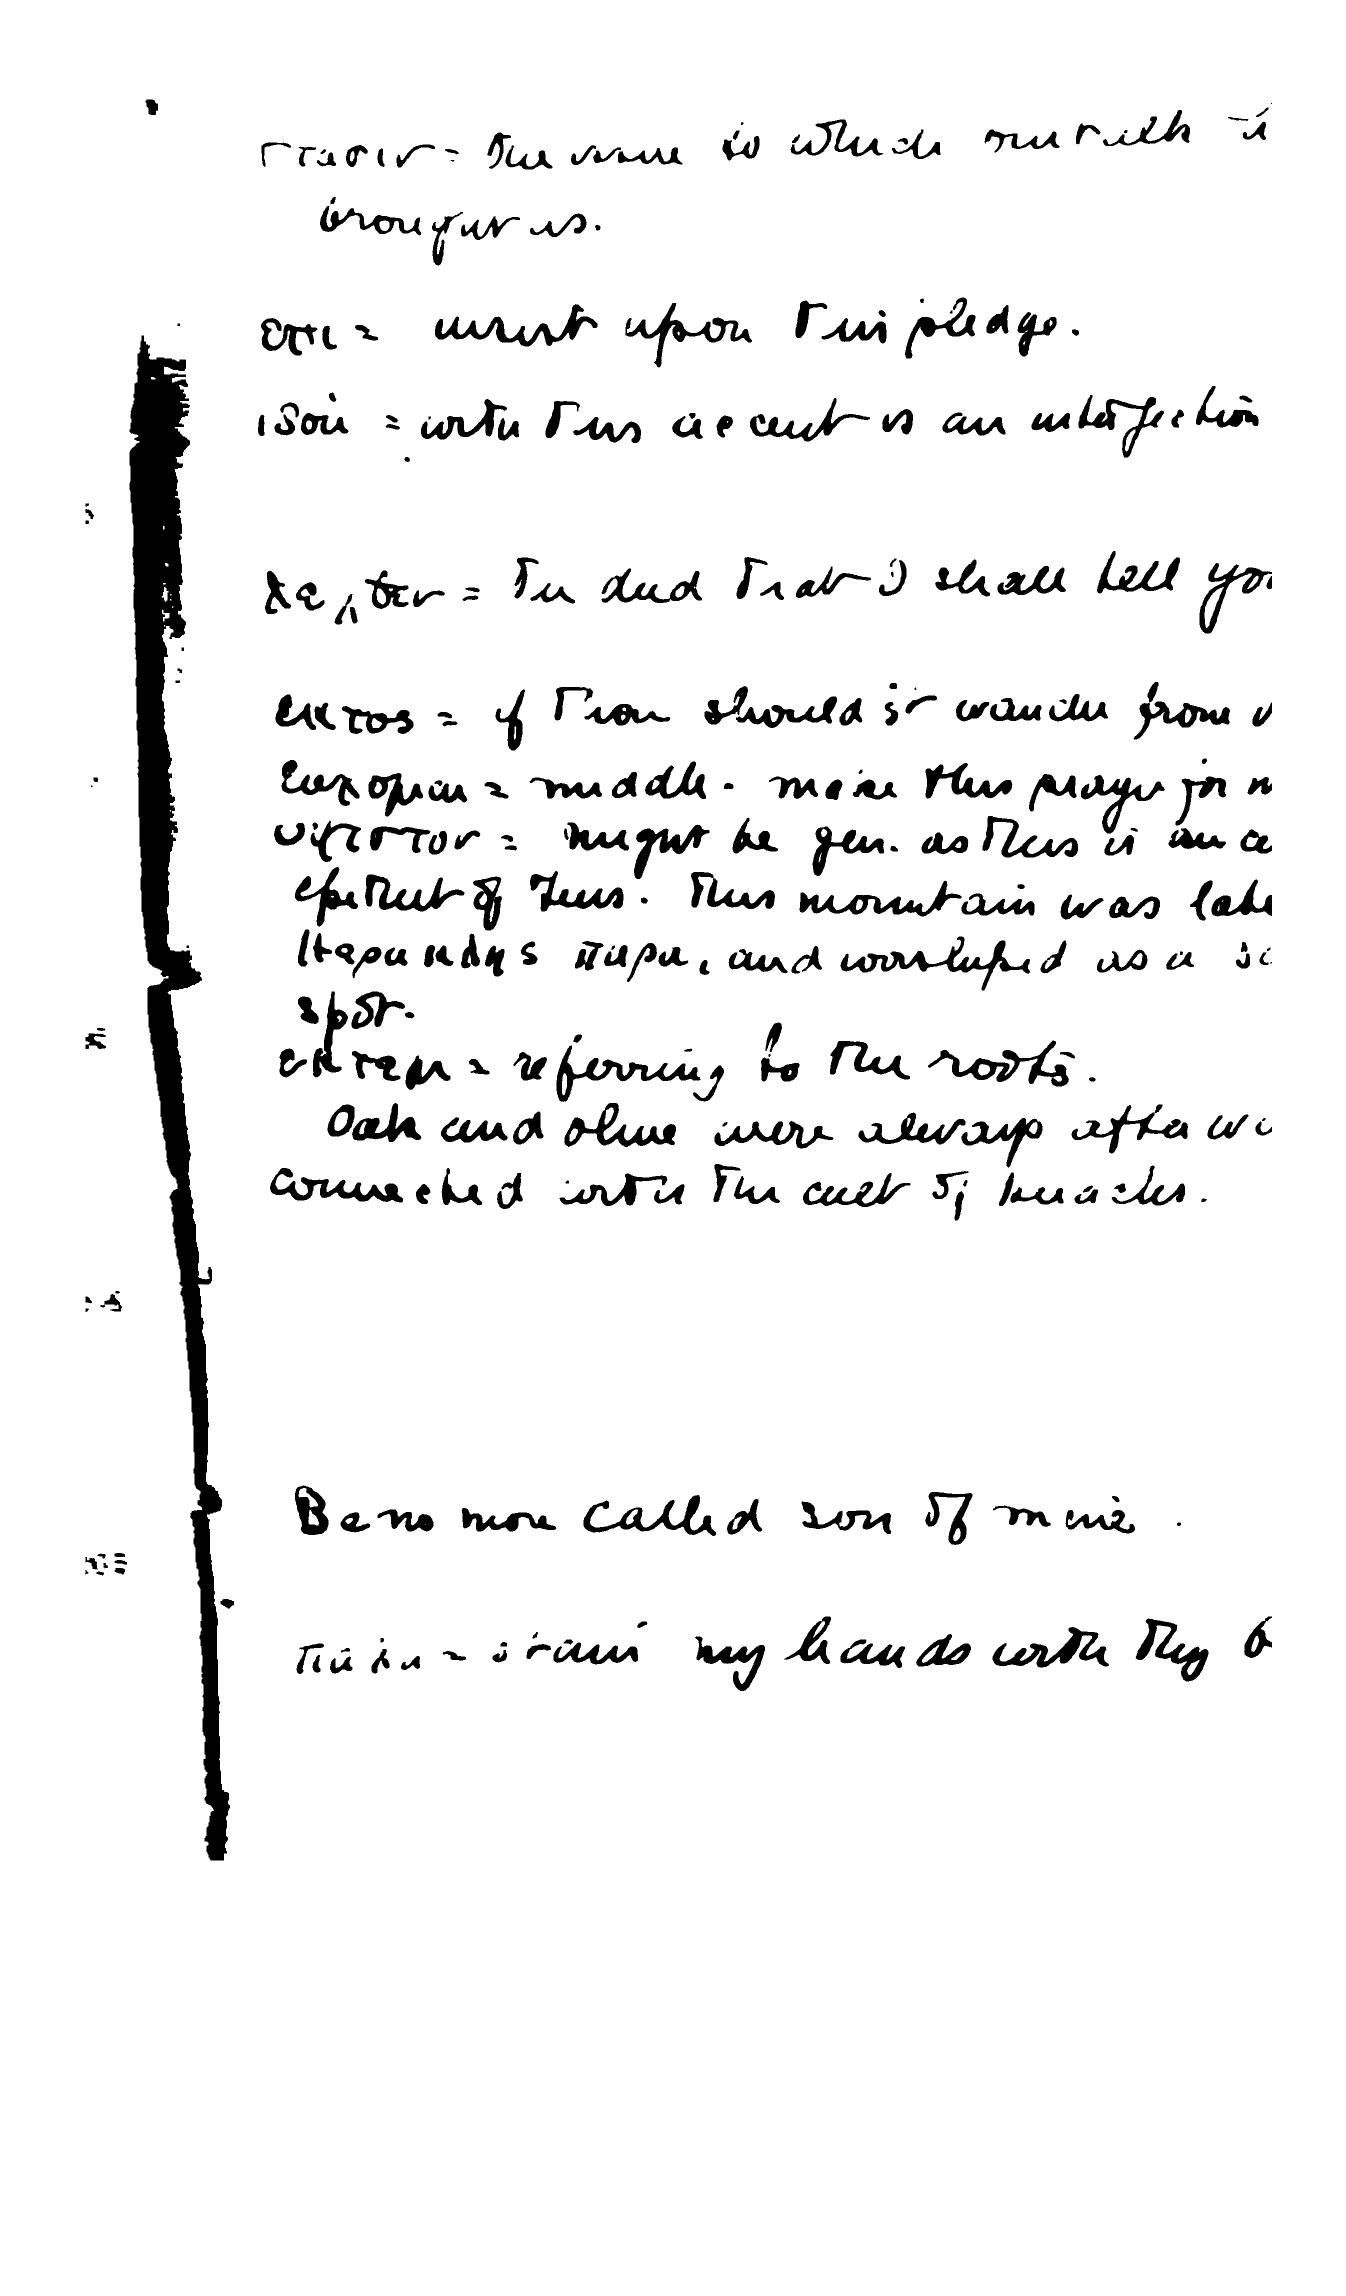 στασιν = the issue to which my talk
brought us.
επι = insist upon this pledge.
ιδου = with this accent is an interjection
λεχθεν = the deed that I shall tell you
εκτος = if thou shouldst wander from
ευχομαι = middle. make this prayer for
υψιστον = might be gen. as this is an
epithet of Zeus. This mountain was
πυρα, and worshiped as a
spot.
εκτεμ = referring to the roots.
Oak and olive were always
connected with the cult of heracles.
Be no more called son of mine.
= stain my hands with thy